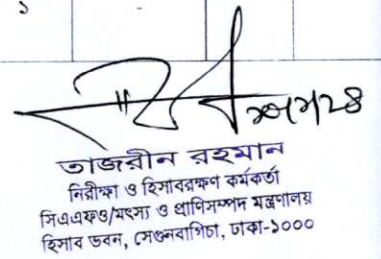 ১
তাজরীন রহমান
নিরীক্ষা ও হিসাবরক্ষণ কর্মকর্তা
সিএএফও/মৎস্য ও প্রাণিসম্পদ মন্ত্রণালয়
হিসাব ভবন, সেগুনবাগিচা, ঢাকা-১০০০